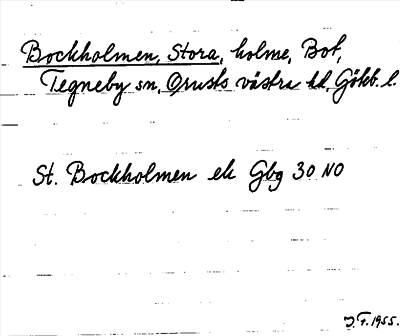 Bockholmen, Stora, holme, Bot,
Tegneby sn, Orusts västra hd, Götb. l.
St. Bockholmen ek Gbg 30 NO
J.F. 1955.